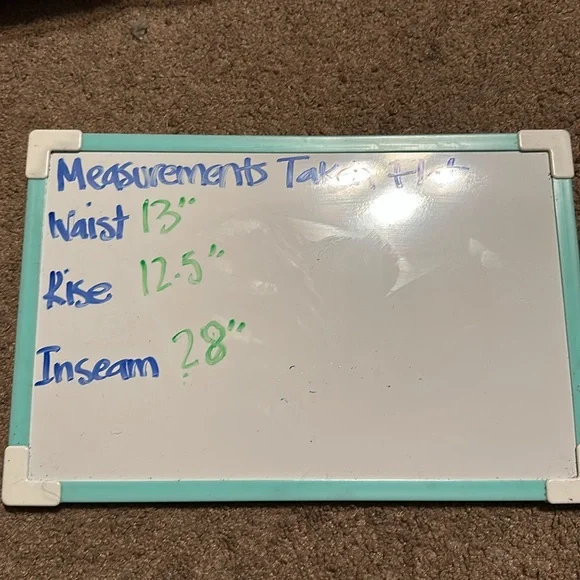 Measurements Taken Flat
Waist 13"
Rise 12.5"
Inseam 28"